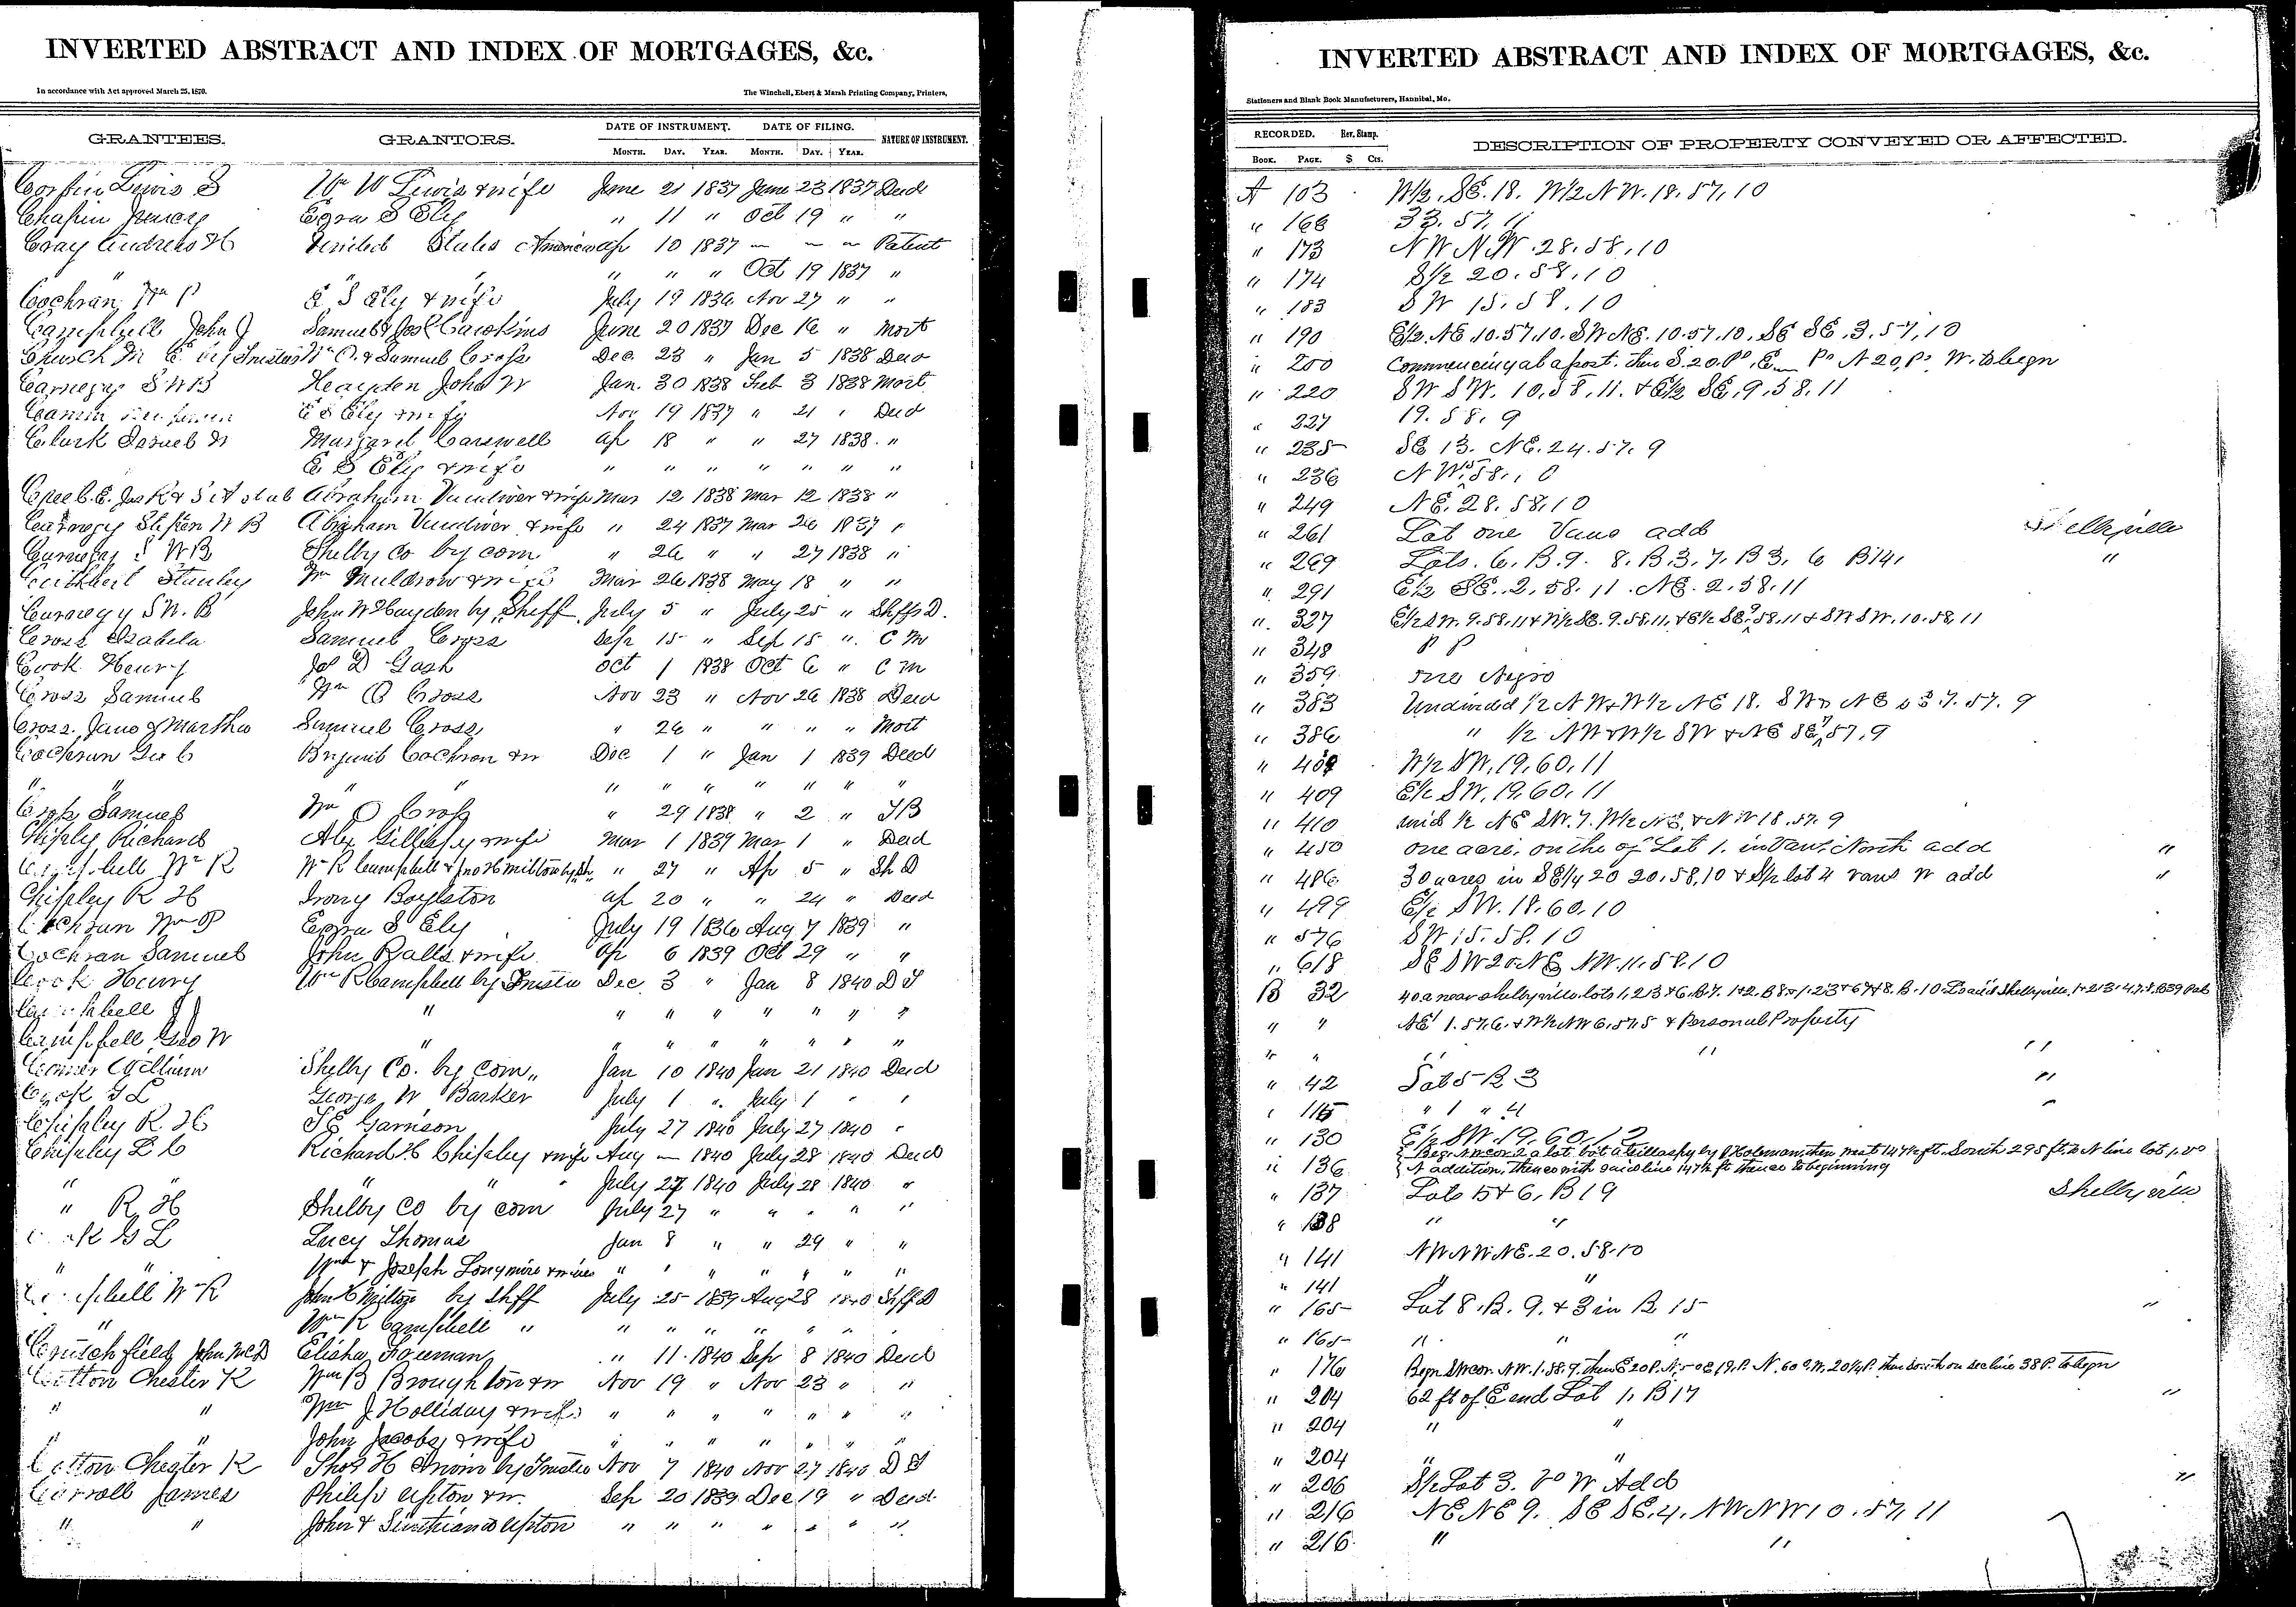 INVERTED ABSTRACT AND INDEX OF MORTGAGES, &c.
In accordance with Act approved March 25, 1870. The Winchell, Ebert & Marsh Printing Company, Printers,
GRANTEES. GRANTORS. DATE OF INSTRUMENT. DATE OF FILING. NATURE OF INSTRUMENT.
MONTH. DAY. YEAR. MONTH. DAY. YEAR.
Lewis S Wm W Lewis & wife June 21 1837 June 23 1837 Deed
Chapin Ezra S Ely " 11 " Oct 19 " "
Andrew H United States America Ap 10 1837 — — — Patent
" " " " " Oct 19 1837 "
Cochran Wm P E S Ely & wife July 19 1836 Nov 27 " "
Campbell John J Samuel & June 20 1837 Dec 16 " Mort
Church M E by Trustees Wm O. & Samuel Cross Dec. 23 " Jan 5 1838 Deed
Carnegy S W B Heayden John W Jan. 30 1838 Feb 3 1838 Mort
E S Ely & wife Nov 19 1837 " 21 " Deed
Clark Margaret Carswell Ap 18 " " 27 1838 "
E S Ely & wife " " " " " " "
Abraham Vandiver & wife Mar 12 1838 Mar 12 1838 "
Carnegy Stephen W B Abraham Vandiver & wife " 24 1837 Mar 26 1837 "
Carnegy S WB Shelby Co by com " 26 " " 27 1838 "
Cuthbert Stanley Wm Muldrow & wife Mar 26 1838 May 18 " "
Carnegy S W. B John W Hayden by Sheff July 5 " July 25 " Shffs D.
Cross Isabela Samuel Cross Sep 15 " Sep 15 " C M
Cook Henry Jos D Gash Oct 1 1838 Oct 6 " C M
Cross Samuel Wm O Cross Nov 23 " Nov 26 1838 Deed
Cross. Jane & Martha Samuel Cross " 26 " " " " Mort
Cochran Geo C Cochran & w Dec 1 " Jan 1 1839 Deed
" " " " " " " " " " "
Cross Samuel Wm O Cross " 29 1838 " 2 "
Chipley Richard Alex Gillaspy & wife Mar 1 1839 Mar 1 " Deed
Campbell Wm R Wm R Campbell & Jno H Milton by Sh. " 27 " Ap 5 " Sh D
Chipley R H Irony Boylston Ap 20 " " 24 " Deed
Cochran Wm P Ezra S Ely July 19 1836 Aug 7 1839 "
Cochran Samuel John Ralls & wife Ap 6 1839 Oct 29 " "
Cook Henry Wm R Campbell by Trustee Dec. 3 " Jan 8 1840 D T
Campbell " " " " " " " "
Campbell Geo W " " " " " " " "
William Shelby Co. by Com " Jan 10 1840 Jan 21 1840 Deed
Cook G L George W Barker July 1 " July 1 " "
Chipley R. H Garrison July 27 1840 July 27 1840 "
Chipley L C Richard H Chipley & wife Aug — 1840 July 28 1840 Deed
" " " July 27 1840 July 28 1840 "
" R H Shelby Co by com July 27 " " " " "
Cook G L Lucy Thomas Jan 8 " " 29 " "
" " & Joseph Longmire & wives " " " " " " "
Campbell Wm R John H Milton by Shff July 25 1839 Aug 28 1840 Shff D
" Wm R Campbell " " " " " " " "
Crutchfield John McD Elisha Foreman " 11 1840 Sep 8 1840 Deed
Cotton Chester K Wm B Broughton & w Nov 19 " Nov 23 " "
" " Wm J Holliday & wife " " " " " " "
" " John Jacobs, & wife " " " " " " "
Cotton Chester K Thos H by Trustee Nov 7 1840 Nov 27 1840 D T
Carroll James Philip Upton & w. Sep 20 1839 Dec 19 " Deed
" " John & Upton " " " " " " "
INVERTED ABSTRACT AND INDEX OF MORTGAGES, &c.
Stationers and Blank Book Manufacturers, Hannibal, Mo.
RECORDED. Rev. Stamp. DESCRIPTION OF PROPERTY CONVEYED OR AFFECTED.
BOOK. PAGE. $ Cts.
A 103 W½. SE. 18. W½ NW. 18. 57. 10
" 166 33. 57. 11
" 173 NW NW. 28. 58. 10
" 174 S½ 20. 58. 10
" 183 SW 15. 58. 10
" 190 E½. NE. 10. 57. 10. SW NE. 10. 57. 10. SE SE. 3. 57. 10
" 200 Commencing at a post. then S. 20. Ps, E Ps N 20, Ps, W. to begn
" 220 SW SW. 10. 58. 11. & E½ SE. 9. 58. 11
" 227 19. 58. 9
" 235 SE 13. NE. 24. 57. 9
" 236
" 249 NE. 28. 58. 10
" 261 Lot one Vans add Shelbyville
" 269 Lots. 6. B. 9. 8. B. 3. 7. B 3. 6 B 14. "
" 291 E½ SE. 2. 58. 11. NE. 2. 58. 11
" 327 E½ SW. 9. 58. 11 & W½ SE. 9. 58. 11. & E½ SE 9. 58. 11 & SW SW. 10. 58. 11
" 348 P P
" 359 one Negro
" 383 Undivided ½ N W & W ½ NE 18. 7. 57. 9
" 386 " ½ NW & W½ SW & NE SE 7. 57. 9
" 409 W½ SW. 19. 60. 11
" 409 E½ SW. 19. 60. 11
" 410 und ½ NE SW. 7. W½ NE. & NW 18. 57. 9
" 450 one acre. on the of Lot 1. in Vans North add "
" 486 30 acres in SE¼ 20. 58. 10 & S½ lot 4 vans W add "
" 499 E½ SW. 18. 60. 10
" 576 SW 15. 58. 10
" 618 SE SW 20 & NE NW. 11. 58. 10
B 32 40 a near Shelbyville. lots 1, 2, 3 & 6. B 7. 1 & 2. B 8
" " NE 1. 57. 6. & W½ NW 6. 57. 5 & Personal Property
" " " " "
" 42 Lot 5 B 3 "
" 115 " 1 " 4 "
" 130 E½ SW. 19. 60. 12
" 136 then west 147½ ft. South 295 ft. to N line lot 1. vs
N addition, thence with said line 147½ ft thence to beginning
" 137 Lots 5 & 6. B 19 Shelbyville
" 138 " "
" 141 NW NW NE. 20. 58. 10
" 141 "
" 165 Lot 8. B. 9. & 3 in B 15 "
" 165 " " "
" 176 Begn SW cor. NW. 1. 58. 9. then E 20 P. then South on sec line 38 P. to begn
" 204 62 ft of E end Lot 1. B 17 "
" 204 " "
" 204 " "
" 206 S½ Lot 3. Vs W Add "
" 216 NE NE 9. SE SE. 4. NW NW 10. 57. 11
" 216 " "